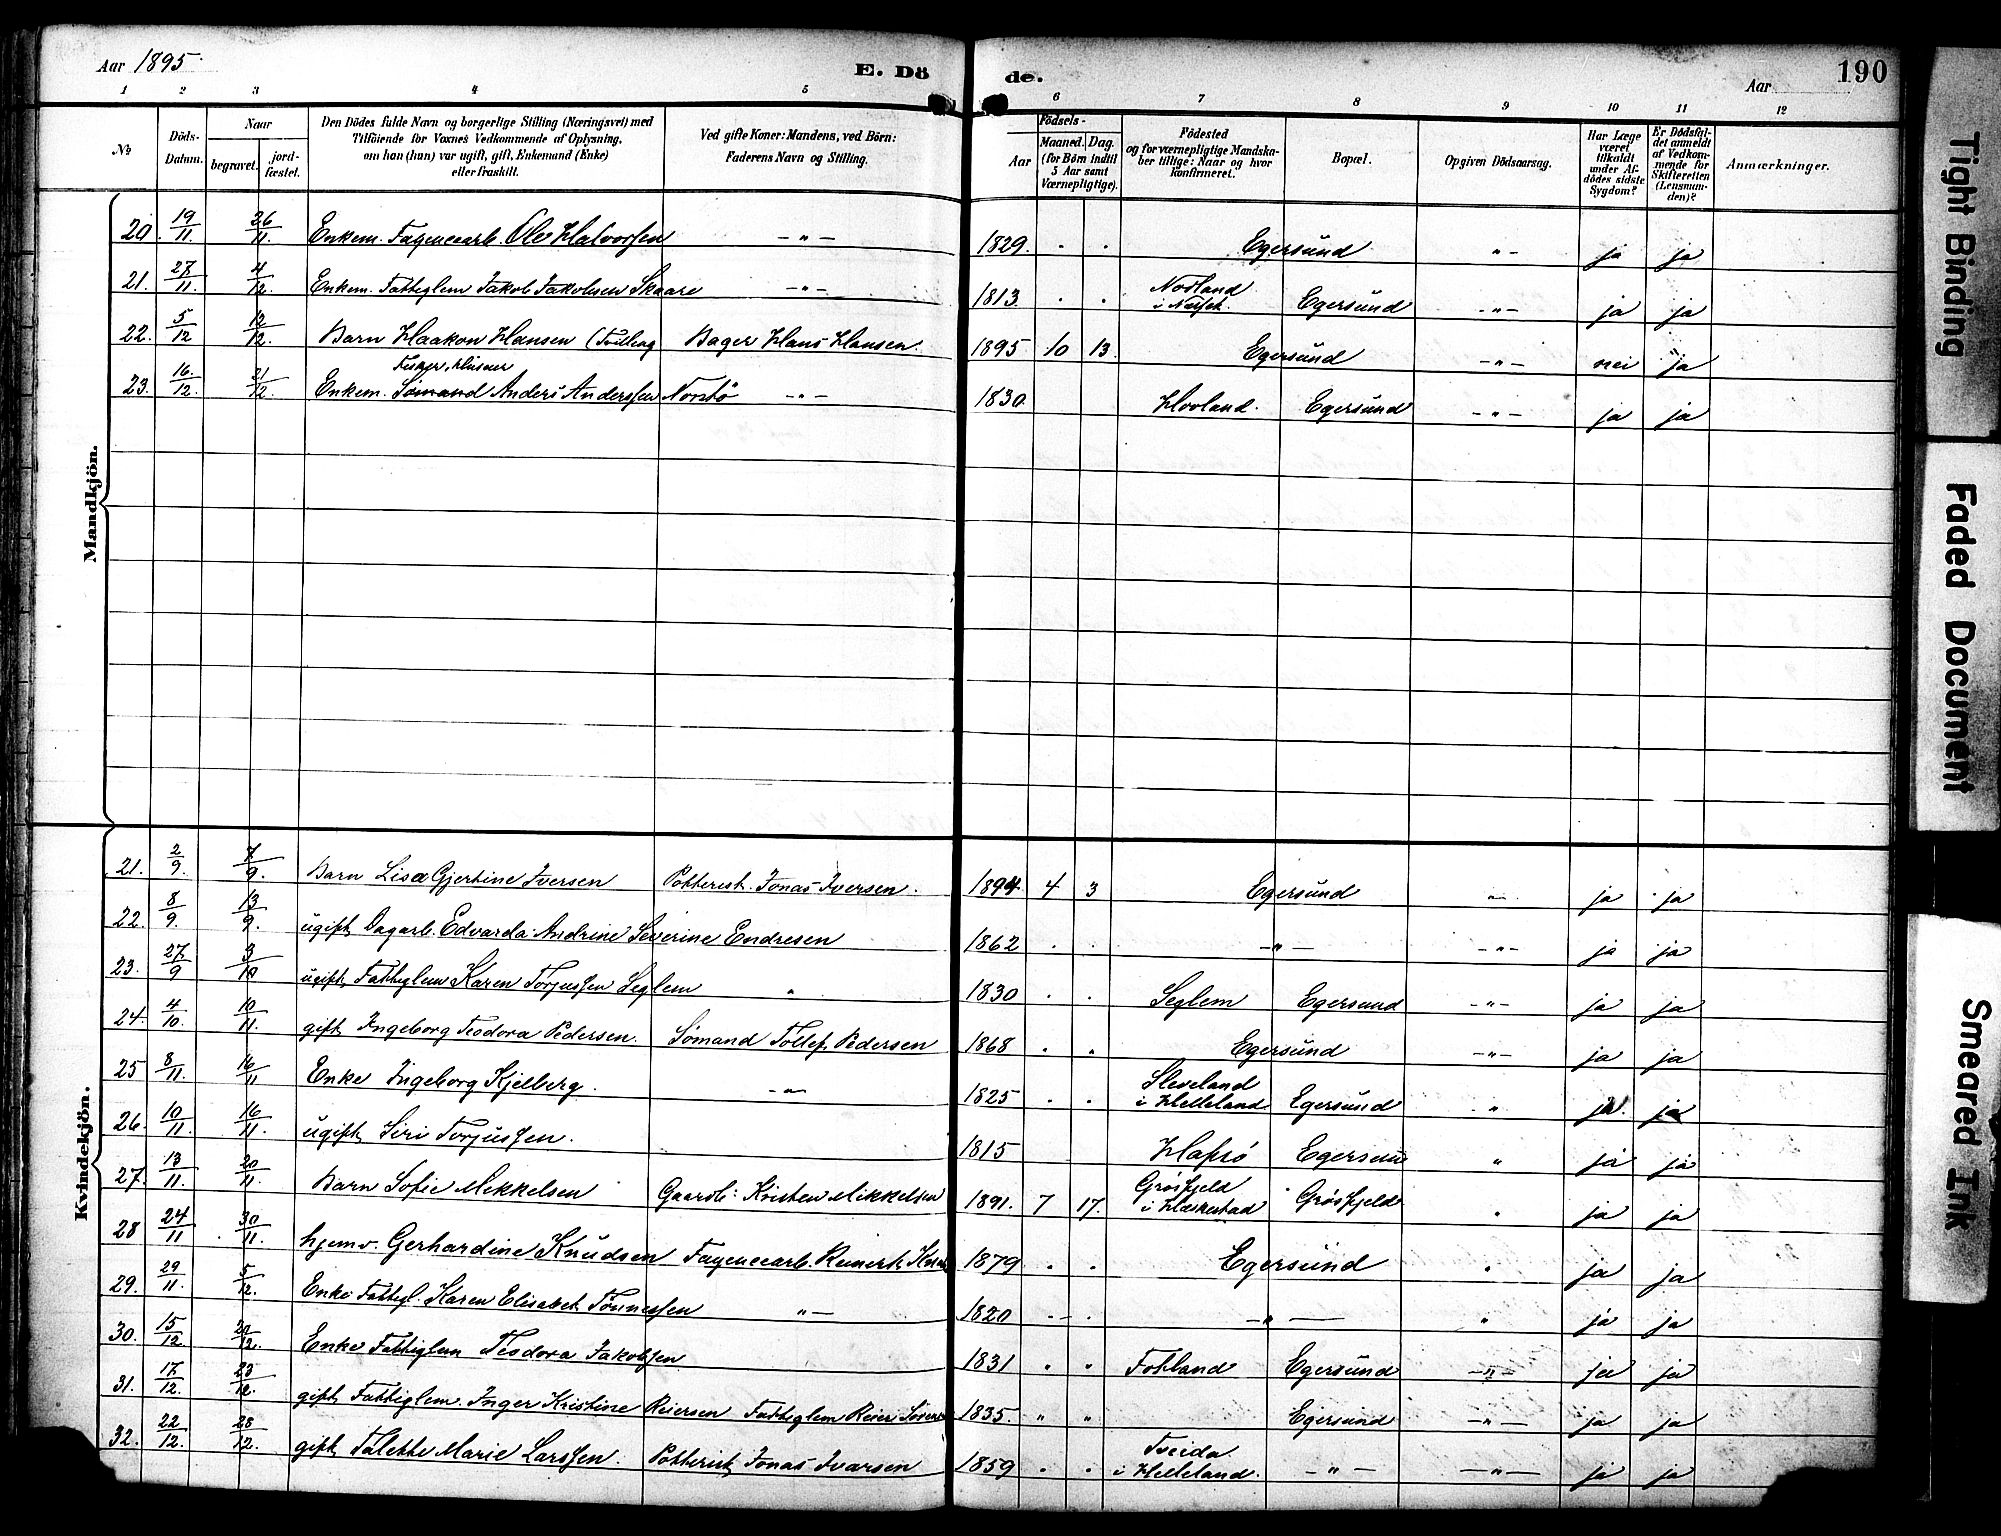 Aar 1895. E. Dö de. Aar 190
1 2 3 4 5 6 7 8 9 10 11 12
No
Döds-Datum.
Naar
begravet.
jordfæstet.
Den Dödes fulde Navn og borgerlige Stilling (Næringsvei) med
Tilföiende for Voxnes Vedkommende af Oplysning,
om han (hun) var ugift, gift, Enkemand (Enke)
eller fraskilt.
Ved gifte Koner: Mandens, ved Börn:
Faderens Navn og Stilling.
Födsels-
Aar
Maaned. Dag.
(for Börn indtil
5 Aar samt
Værnepligtige).
Födested
og for værnepligtige Mandska-
ber tillige: Naar og hvor
konfirmeret.
Bopæl.
Opgiven Dödsaarsag.
Har Læge
været
tilkaldt
under Af-
dödes sidste
Sygdom?
Er Dödsfal-
det anmeldt
af Vedkom-
mende for
Skifteretten
(Lensman-
den)?
Anmærkninger.
Mandkjön.
20. 19/11. 26/11. Enkem. Fagencearb. Ole Halvorsen — " — 1829. . . Egersund " - ja ja
21. 27/11. 4/12. Enkem. Fattiglem Jakob Jakobsen Skaare — " — 1813 . . Nodland
i Egersund - " - ja ja
22. 5/12 12/12. Barn Haakon Hansen (Tvilling Bager Hans Hansen. 1895 10 13. Egersund - " - nei ja
Fisker, Husmr
23. 16/12. 21/12. Enkem. Sømand Anders Anderssen Norstö — " — 1830. Hovland. Egersund - " - ja ja
Kvindekjön.
21. 2/9. 7/9. Barn Lisa Gjertine Iversen Potterest. Jonas Iversen. 1894 4 3 Egersund " ja ja
22. 8/9. 13/9. ugift Dagarb. Edvarda Andrine Severine Endresen 1862 . . — " — - " - ja ja
23. 27/9 3/10 ugift Fattiglem Karen Torjussen Seglem " 1830 . . Seglem Egersund - " - ja ja
24. 4/10. 10/11. gift Ingeborg Teodora Pedersen. Sömand Tollef Pedersen 1868 . . Egersund - " - ja ja
25 8/11. 16/11 Enke Ingeborg Kjelberg. - " - 1825 . . Sleveland
i Helleland Egersund " ja. ja
26. 10/11 16/11. ugift Siri Torjussen. 1815 Hafsö Egersun " ja ja
27. 13/11. 20/11. Barn Sofie Mikkelsen Gaardb: Kristen Mikkelsen 1891. 7 17. Grösfjeld
i Heskestad Grösfjeld " ja ja
28 24/11 30/11. hjemv. Gerhardine Knudsen Fagencearb. Reinert 1879 . . Egersund " ja ja
29. 29/11. 5/12. Enke Fattigl. Karen Elisabet Tönnessen " — 1820 . - . — " — " ja ja
30. 15/12. 20/12. Enke Fattiglem Teodora Jakobsen 1831 " " Fotland Egersund — " — ja ja
31. 17/12. 23/12. gift Fattiglem. Inger Kristine Reiersen Fattiglem Reier 1835. " " Egersund — " — ja ja
32. 22/12. 28/12. gift Talette Marie Larssen. Potterist Jonas Ivarsen 1859 . . Tveida
i Helleland. — " — — " — ja ja
Tight Binding
Faded Document
Smeared Ink